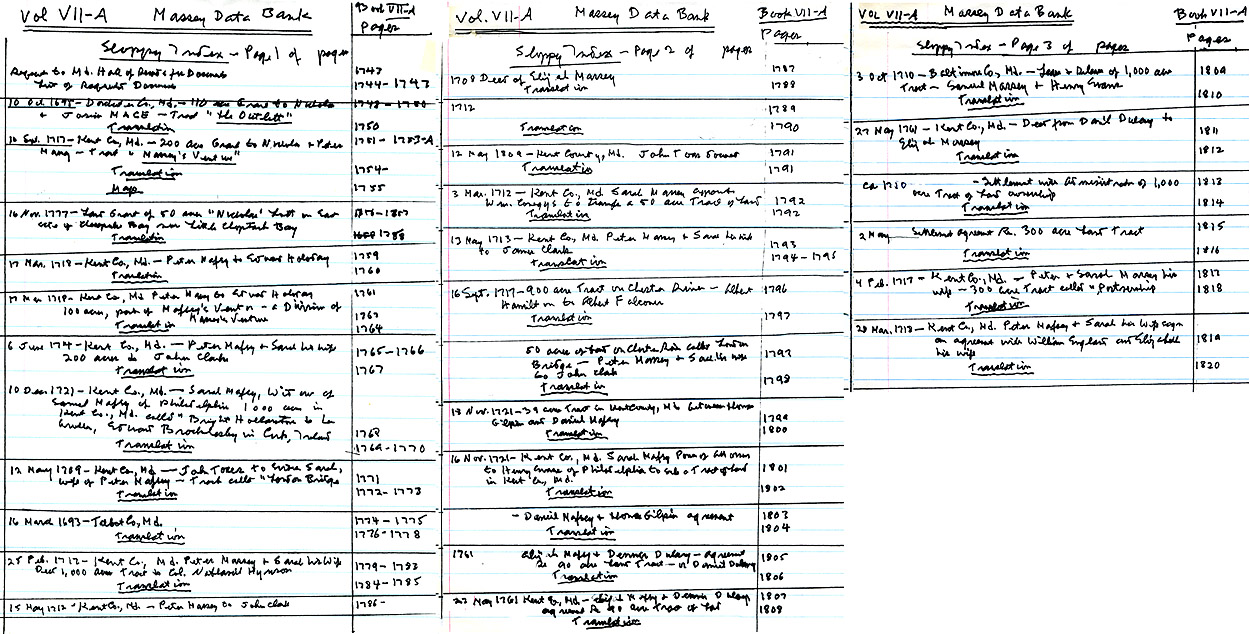 Vol VII-A Massey Data Bank Book VII-A
Pages
Sloppy Index - Page 1 of pages
Request to Md. Hall of Records for Documents 1743
List of Request Documents 1744-1747
10 Oct. 1695 - Dorchester Co., Md. - 110 acre Grant to Nicholas 1748-1750
+ Josias MACE - Tract "the Outlett"
Translation 1750
10 Sept. 1717 - Kent Co., Md. - 200 acre Grant to Nicholas + Peter 1751-1753-A
Massy - Tract "Massy's Venture"
Translation 1754-
Map 1755
16 Nov. 1777 - Land Grant of 50 acres "Nicholas' Lott on East
side of Chesapeake Bay near Little Choptank Bay
Translation 1758
17 Mar. 1718 - Kent Co., Md. - Peter Massy to Edward Holoday 1759
Translation 1760
17 Mar 1718 - Kent Co., Md Peter Massy to Edward Holoday 1761
100 acres, part of Massey's Venture - a Division of
Massey's Venture 1763
Translation 1764
6 June 174 - Kent Co., Md. - Peter Massey + Sarah his wife 1765-1766
200 acres to John Clark
Translation 1767
10 Dec. 1721 - Kent Co., Md. - Sarah Massey, Widow of
Samuel Massey of Philadelphia 1000 acres in
Kent Co., Md. called "Bright Helmston to
Edward Brocklesby in Cork, Ireland 1768
Translation 1769-1770
12 May 1709 - Kent Co., Md. - John Toers to Sarah,
wife of Peter Massey - Tract called "London Bridge 1771
Translation 1772-1773
16 March 1693 - Talbot Co., Md. 1774-1775
Translation 1776-1778
25 Feb. 1712 - Kent Co., Md. Peter Massey + Sarah his Wife
Deed 1,000 acre Tract to Col. Nathaniel Hynson 1779-1783
Translation 1784-1785
15 May 1712 - Kent Co., Md. - Peter Massey to John Clark 1786-
Vol. VII-A Massey Data Bank Book VII-A
Pages
Sloppy Index - Page 2 of pages
1708 Deed of Elijah Massey 1787
Translation 1788
1712 1789
Translation 1790
12 May 1809 - Kent County, Md. John Toers 1791
Translation 1791
3 Mar. 1712 - Kent Co., Md Sarah Massey appoints
Wm. Comegys to transfer a 50 acre Tract of Land 1792
Translation 1792
13 May 1713 - Kent Co., Md. Peter Massey + Sarah his wife 1793
to James Clark
Translation 1794-1795
16 Sept. 1717 - 900 acre Tract on Chester River - Albert 1796
Hamilton to Albert Falconer
Translation 1797
50 acres of land on Chester River called London
Bridge - Peter Massey + Sarah his wife 1797
to John Clark
Translation 1798
18 Nov. 1721 - 39 acre Tract in Kent County, Md between Thomas
Gilpin and Daniel Massey 1799
Translation 1800
16 Nov. 1721 - Kent Co., Md. Sarah Massey Power of Attorney
to Henry Evans of Philadelphia to sell a Tract of land 1801
in Kent Co., Md.
Translation 1802
- Daniel Massey + Thomas Gilpin agreement 1803
Translation 1804
1761 Elijah Massey + Dennis Dulany - agreement 1805
Re 90 acre land Tract - Daniel Dulany
Translation 1806
27 May 1761 Kent Co., Md. - Elijah Massey + Dennis Dulany 1807
agreement Re 90 acre Tract of land 1808
Translation
Vol VII-A Massey Data Bank Book VII-A
Pages
Sloppy Index - Page 3 of pages
3 Oct 1710 - Baltimore Co., Md. - Lease + Release of 1,000 acre 1809
Tract - Samuel Massey + Henry Evans
Translation 1810
27 May 1761 - Kent Co., Md. - Deed from Daniel Dulany to 1811
Elijah Massey 1812
Translation
ca 1710 - Settlement with Administrator of 1,000 1813
acre Tract of Land ownership
Translation 1814
2 May Settlement agreement Re. 300 acre Land Tract 1815
Translation 1816
4 Feb. 1717 - Kent Co., Md. - Peter + Sarah Massey his 1817
wife - 300 acre Tract called "Partnership 1818
Translation
28 Mar. 1713 - Kent Co., Md. Peter Massey + Sarah his Wife sign 1819
an agreement with William England and Elizabeth
his wife
Translation 1820